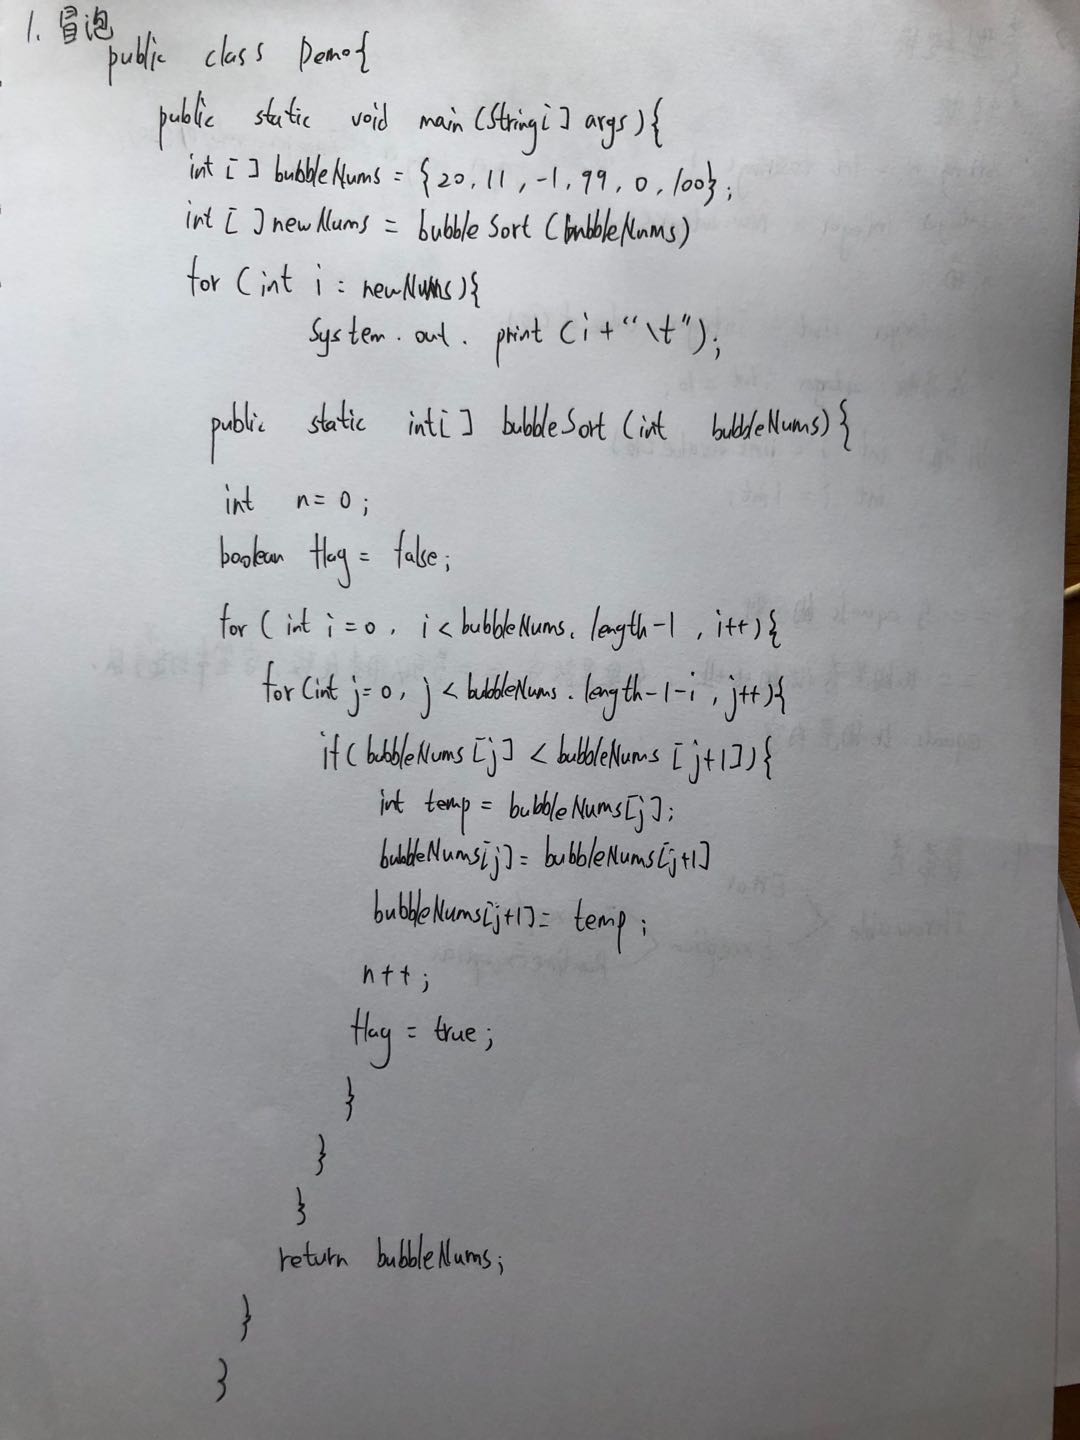 1. 冒泡
public class Demo{
public static void main (String[] args){
int [] bubbleNums = {20, 11, -1, 99, 0, 100};
int [] newNums = bubbleSort (bubbleNums)
for (int i : newNums){
System.out.print (i + "\t");
public static int[] bubbleSort (int bubbleNums){
int n = 0;
boolean flag = false;
for ( int i = 0, i < bubbleNums.length-1, i++){
for (int j=0, j < bubbleNums.length-1-i, j++){
if ( bubbleNums [j] < bubbleNums [j+1]){
int temp = bubbleNums[j];
bubbleNums[j] = bubbleNums[j+1]
bubbleNums[j+1] = temp;
n++;
flag = true;
}
}
}
return bubbleNums;
}
}